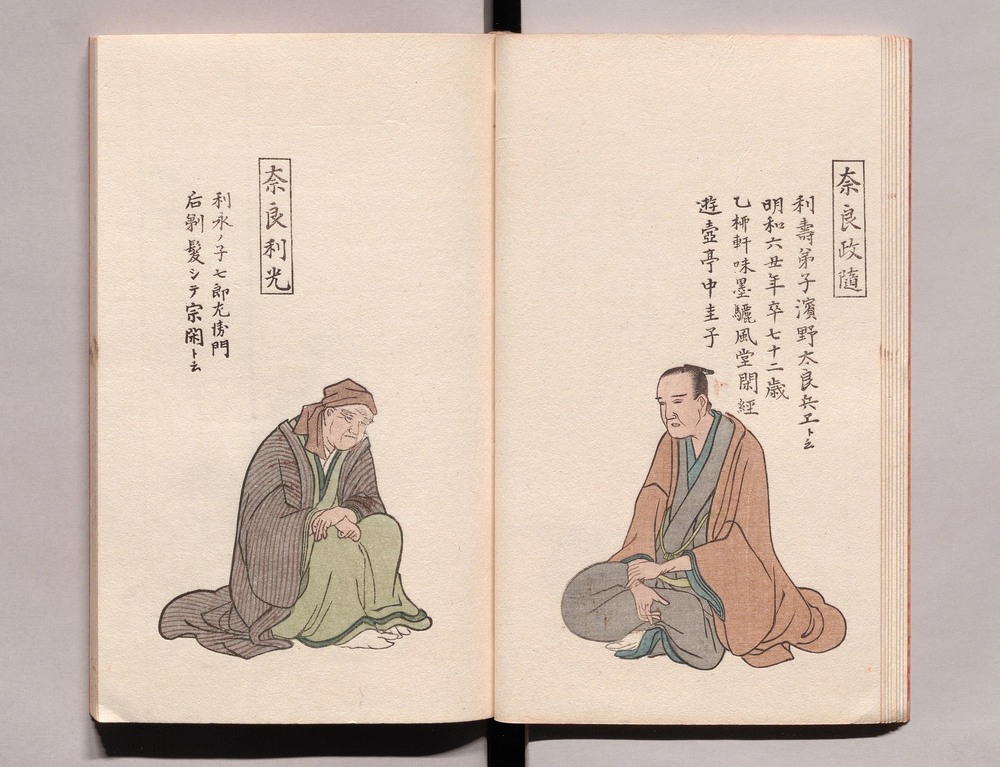 奈良政隨
利壽弟子濱野太良兵ヱト云
明和六丑年卒七十二歳
乙柳軒味墨驪風堂閑經
遊壺亭中圭子
奈良利光
利永ノ子七郎左衛門
后剃髪シテ宗閑ト云